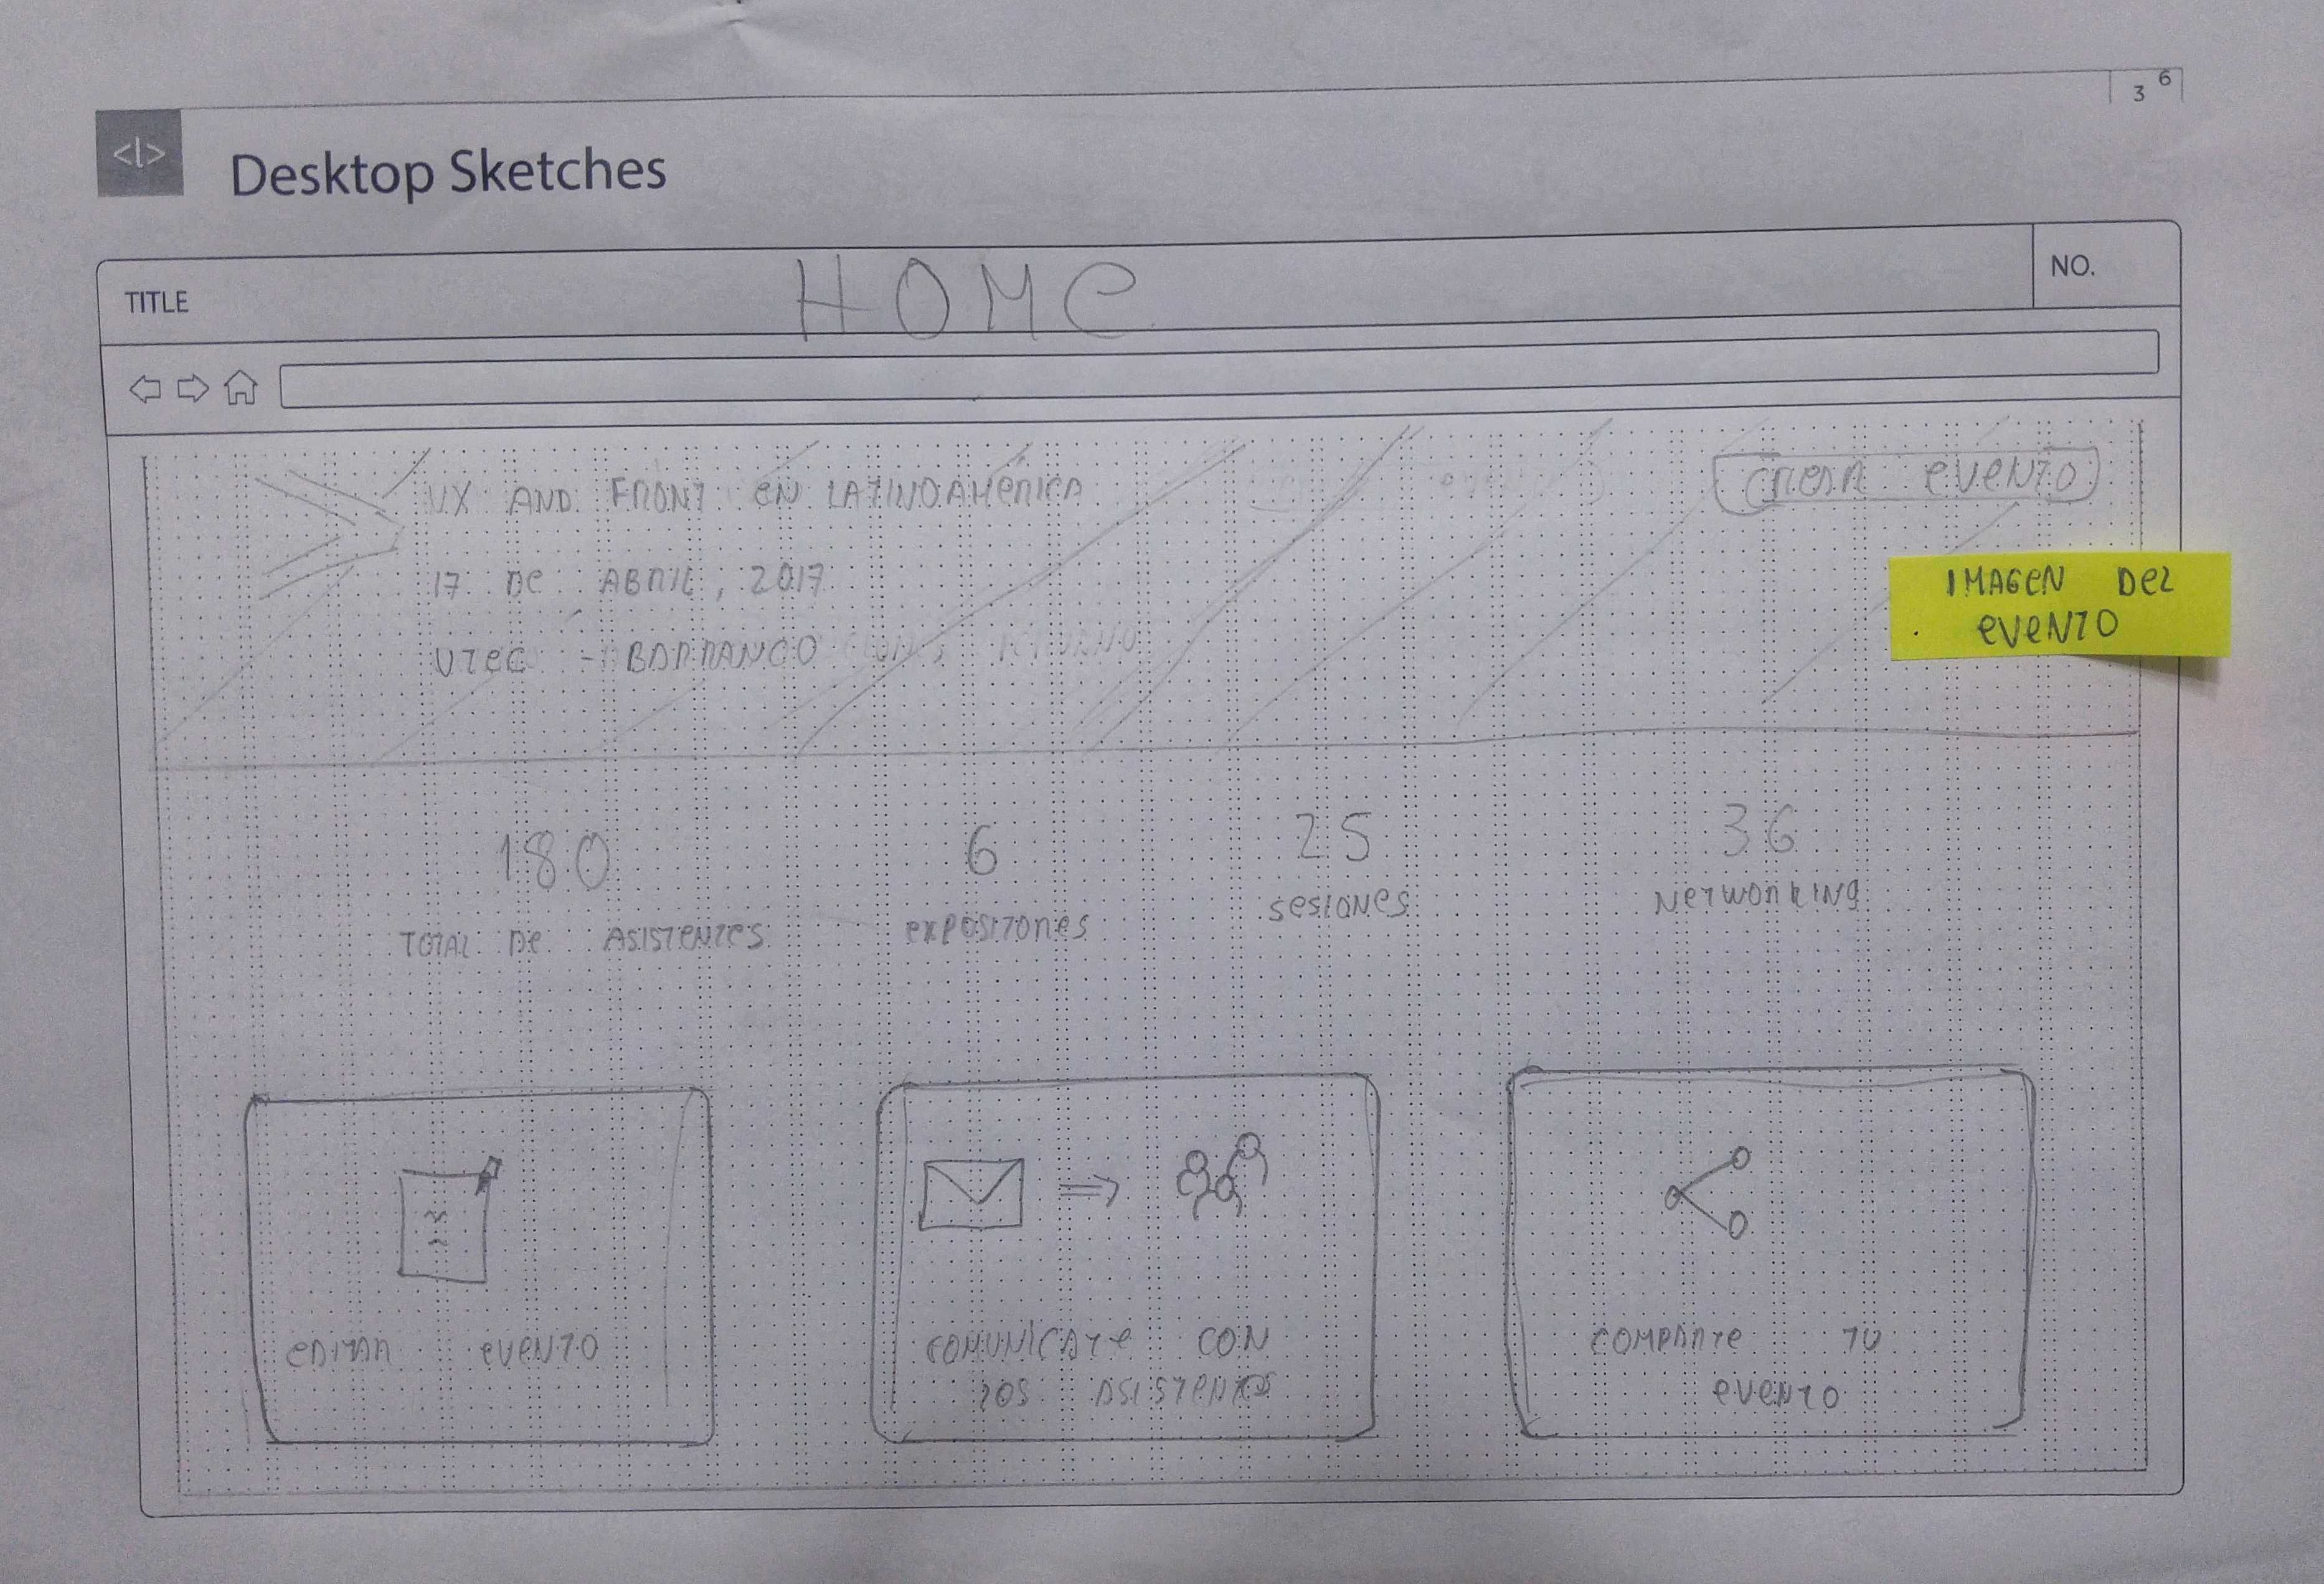 3 6
<|>
Desktop Sketches
TITLE HOME NO.
UX AND FRONT EN LATINOAMÉRICA
CREAR EVENTO
17 DE ABRIL, 2017
IMAGEN DEL
EVENTO
UTEC - BARRANCO
180 6 25 36
TOTAL DE ASISTENTES EXPOSITORES SESIONES NETWORKING
EDITAR EVENTO
COMUNICATE CON
LOS ASISTENTES
COMPARTE TU
EVENTO